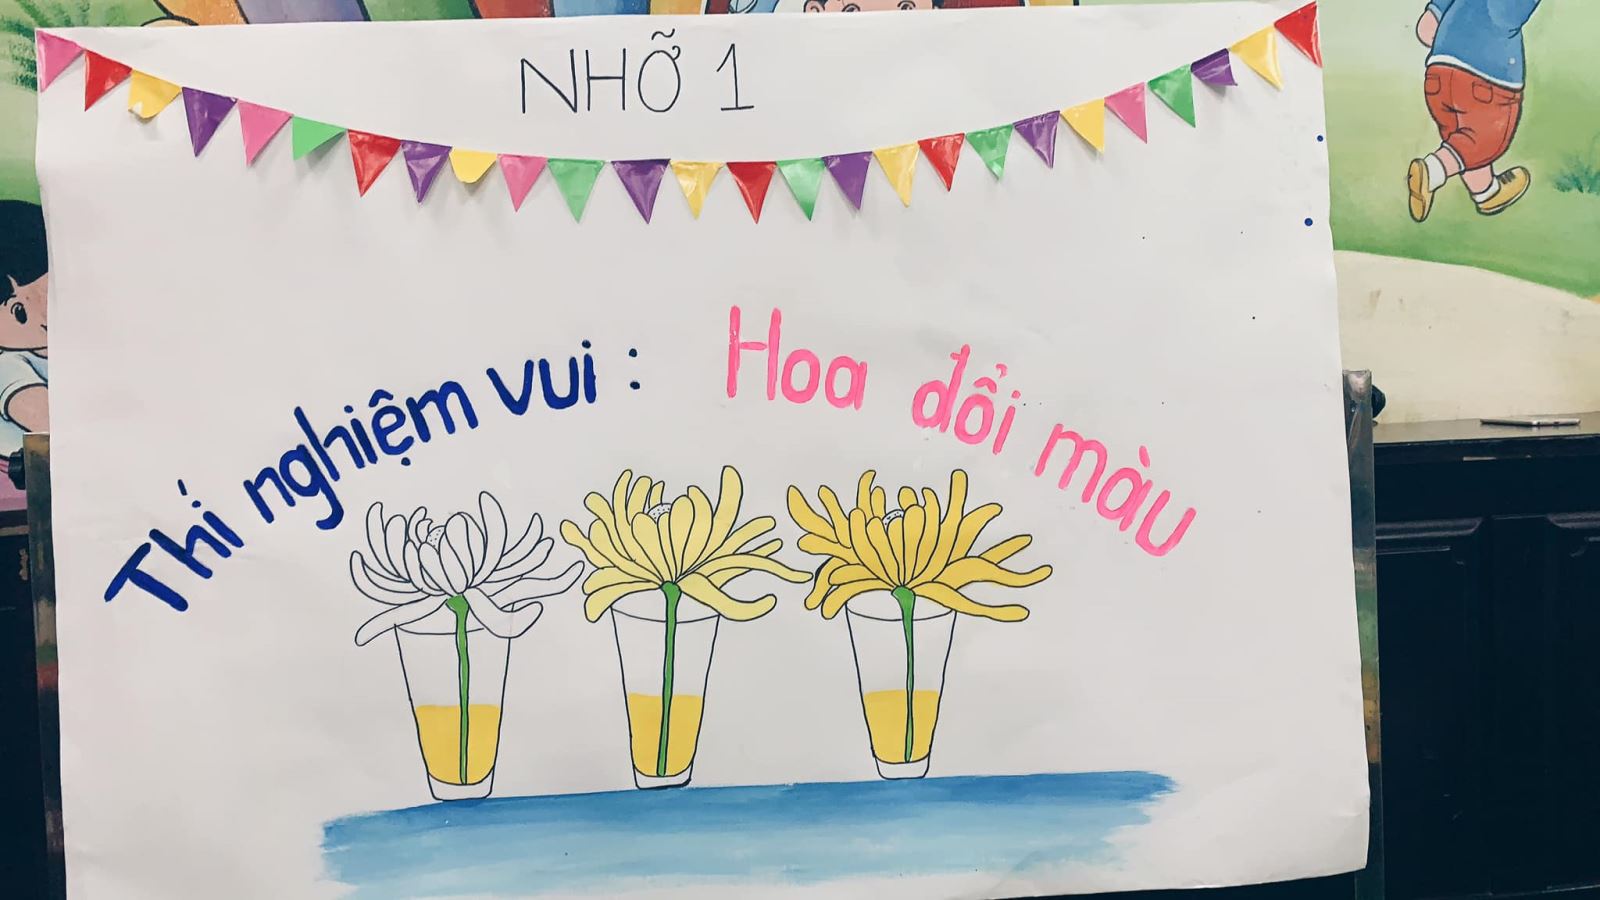 NHỠ 1
Thí nghiệm vui : Hoa đổi màu